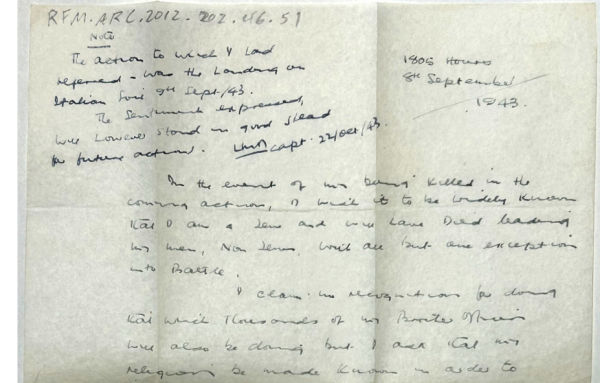 RFM.ARC.2012.202.46.51
Note
The action to which I had
referred - was the Landing on
Italian Soil 9th Sept/43.
The Sentiment expressed,
will however stand in good stead
for future action. Capt. 22/Oct/43.
1805 Hours
8th September
1943.
In the event of my being killed in the
coming action, I wish it to be widely known
that I am a Jew and will have Died leading
my men, Non Jews, with all but one exception
into Battle.
I claim no recognition for doing
that which thousands of my Brother Officers
will also be doing but I ask that my
religion be made known in order to